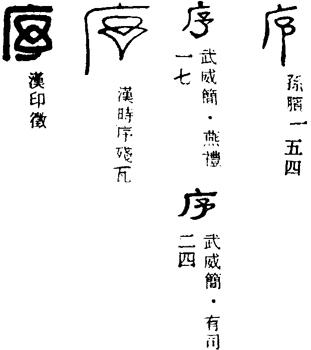 序
孫臏一五四
序
武威簡·燕禮
一七
序
武威簡·有司
二四
序
漢時序殘瓦
序
漢印徵